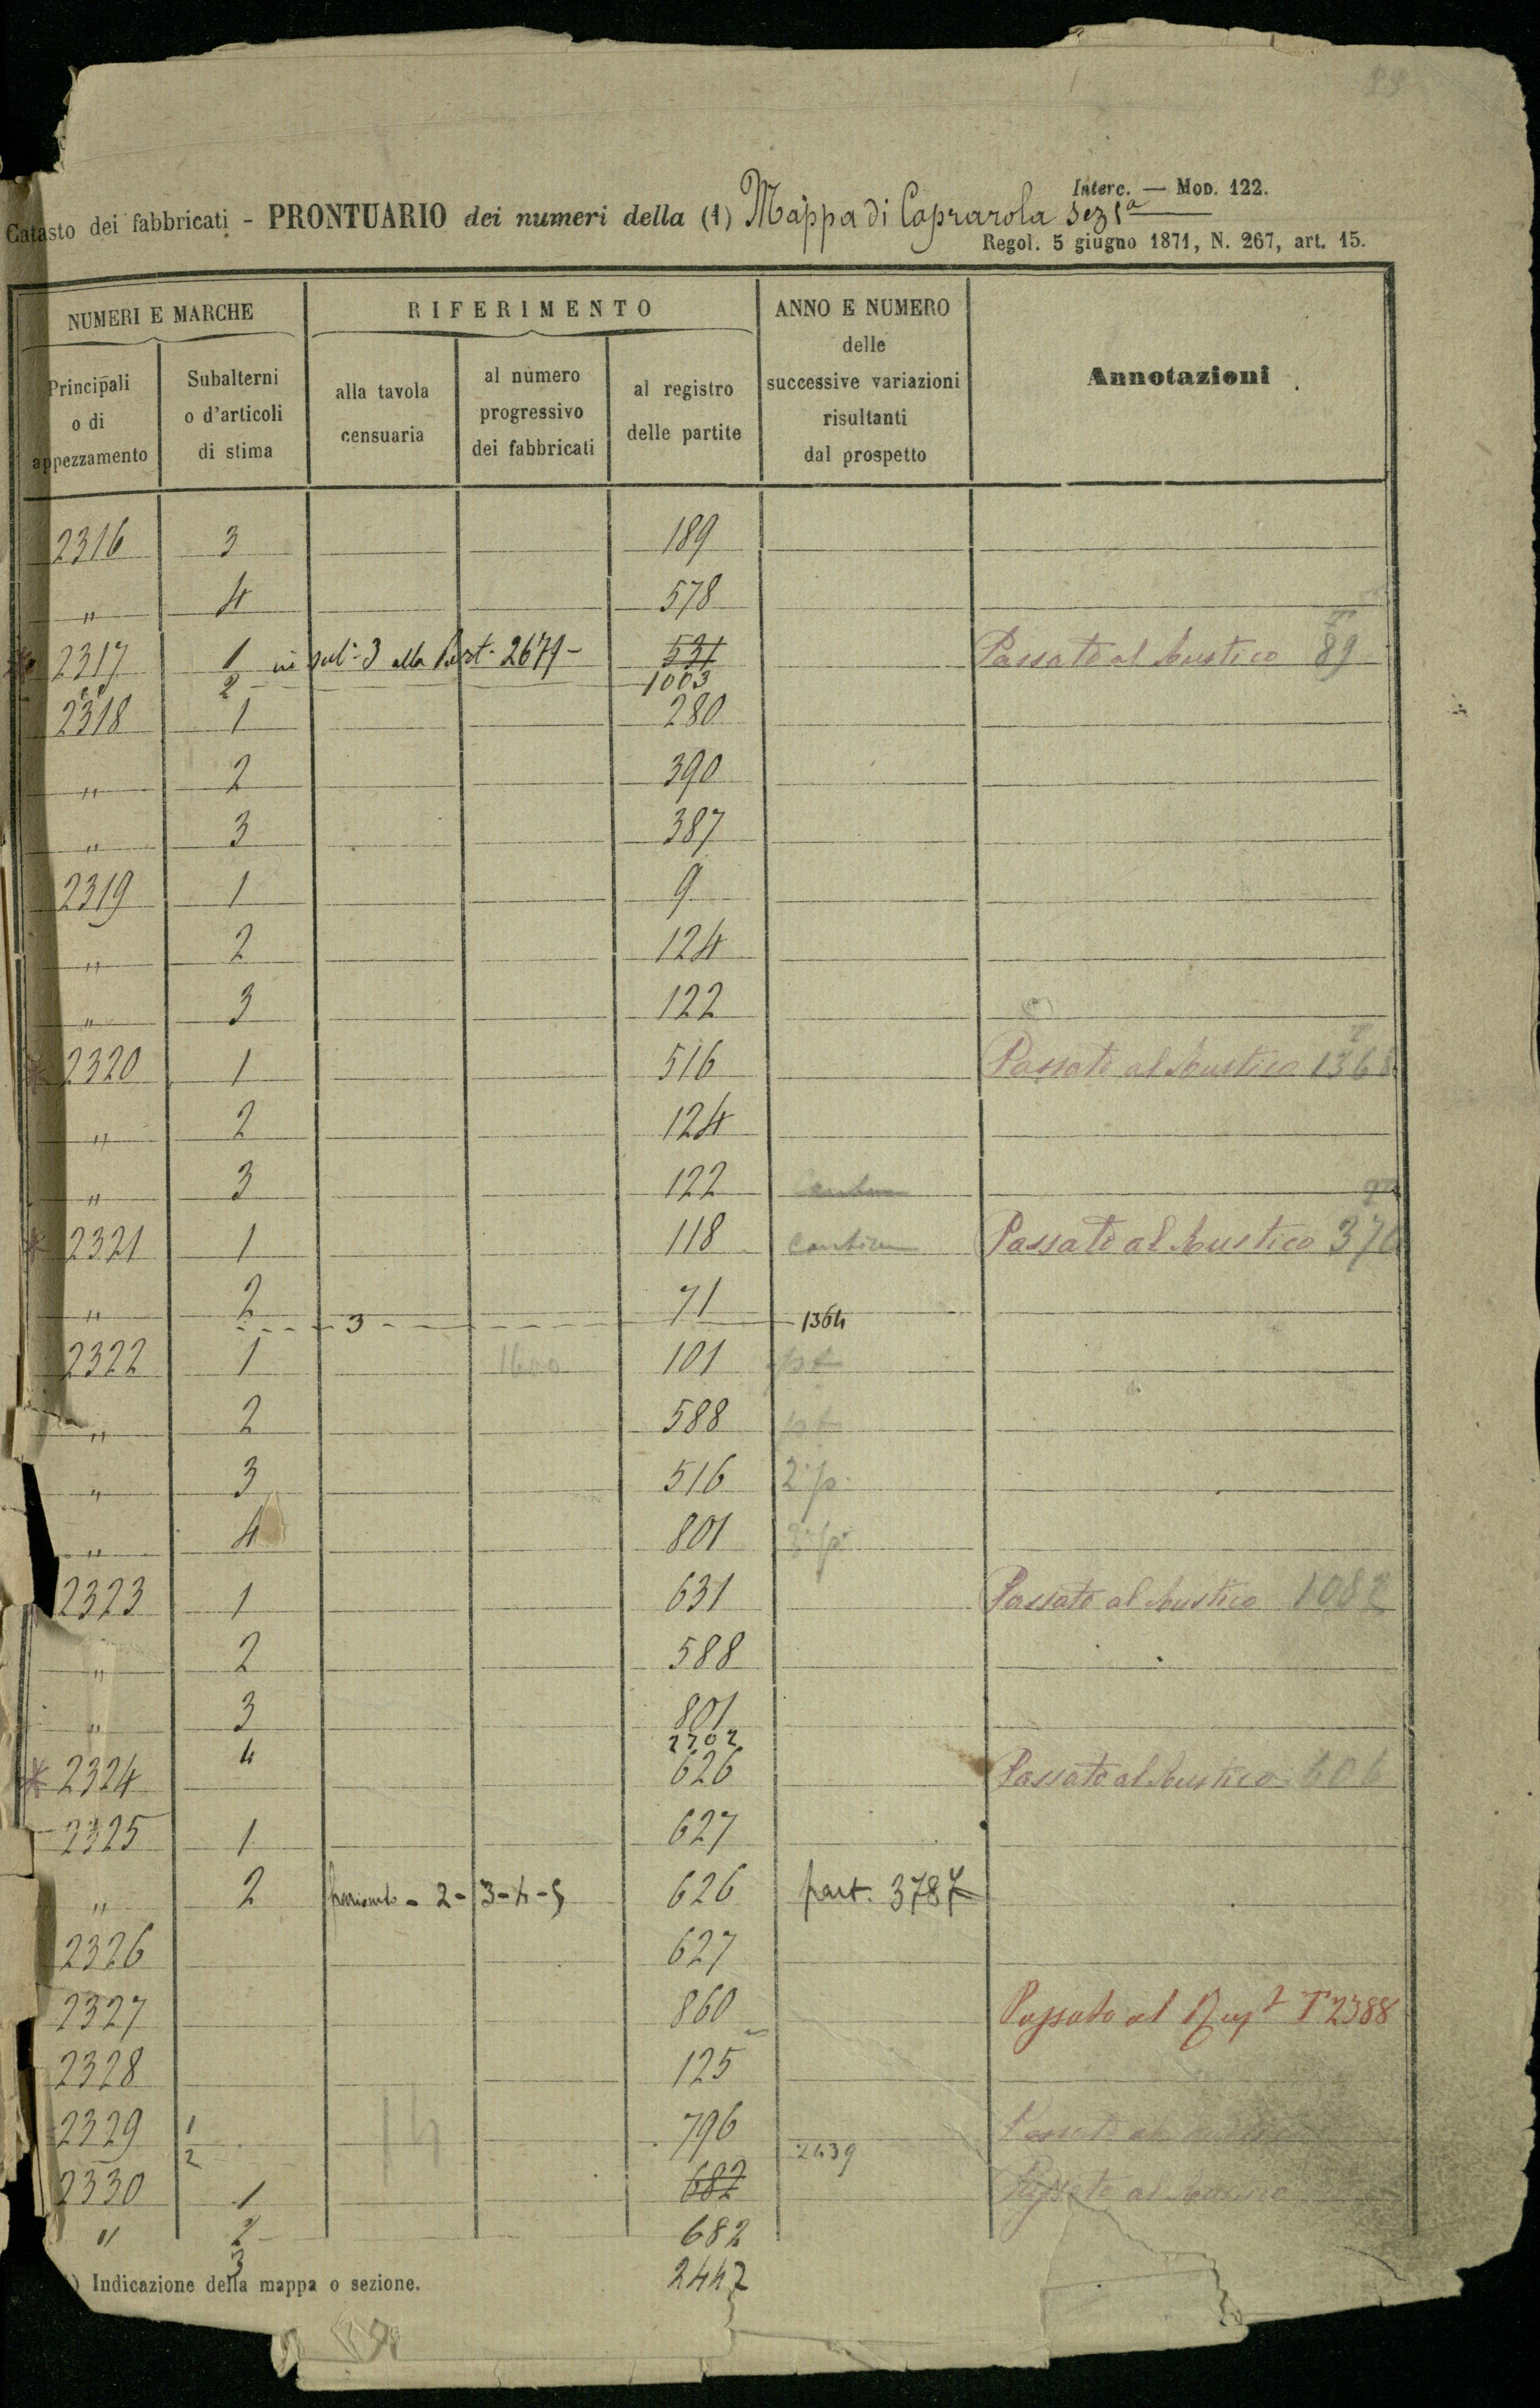 88
Interc. — Mod. 122.
Catasto dei fabbricati - PRONTUARIO dei numeri della (1) Mappa di Caprarola Sez 1ª
Regol. 5 giugno 1871, N. 267, art. 15.
NUMERI E MARCHE RIFERIMENTO ANNO E NUMERO delle successive variazioni risultanti dal prospetto Annotazioni
Principali o di appezzamento Subalterni o d'articoli di stima alla tavola censuaria al numero progressivo dei fabbricati al registro delle partite
2316 3 189
" 4 578
* 2317 1 in sub. 3 alla Part. 2679 - 531 Passato al Rustico 89
" 2 1003
2318 1 280
" 2 390
" 3 387
2319 1 9
" 2 124
" 3 122
* 2320 1 516 Passato al Rustico 1368
" 2 124
" 3 122
* 2321 1 118 Passato al Rustico 370
" 2 71
3 1364
2322 1 1600 101
" 2 588
" 3 516 2. p.
" 4 801
2323 1 631 Passato al Rustico 1082
" 2 588
" 3 801
4 2702
* 2324 626 Passato al Rustico 606
2325 1 627
" 2 - 2 - 3 - 4 - 5 626 part. 3787
2326 627
2327 860 Passato al T 2388
2328 125
2329 1 14 796 Passato al
2 2439
2330 1 682 Passato al
" 2 682
3 2442
(1) Indicazione della mappa o sezione.